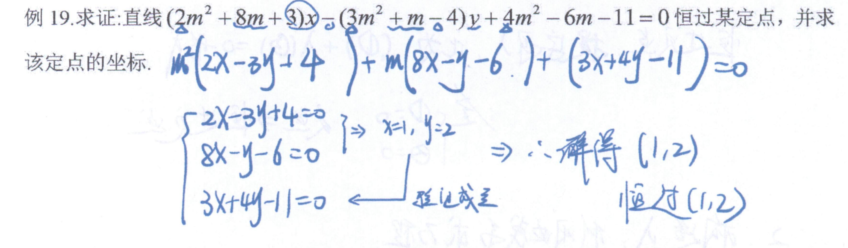 例 19.求证:直线(2m²+8m+3)x-(3m²+m-4)y+4m²-6m-11=0恒过某定点，并求
该定点的坐标.
m²(2x-3y+4)+m(8x-y-6)+(3x+4y-11)=0
2x-3y+4=0
8x-y-6=0 ⇒ x=1, y=2
⇒ ∴解得(1,2)
3x+4y-11=0 ← 验证成立 恒过(1,2)